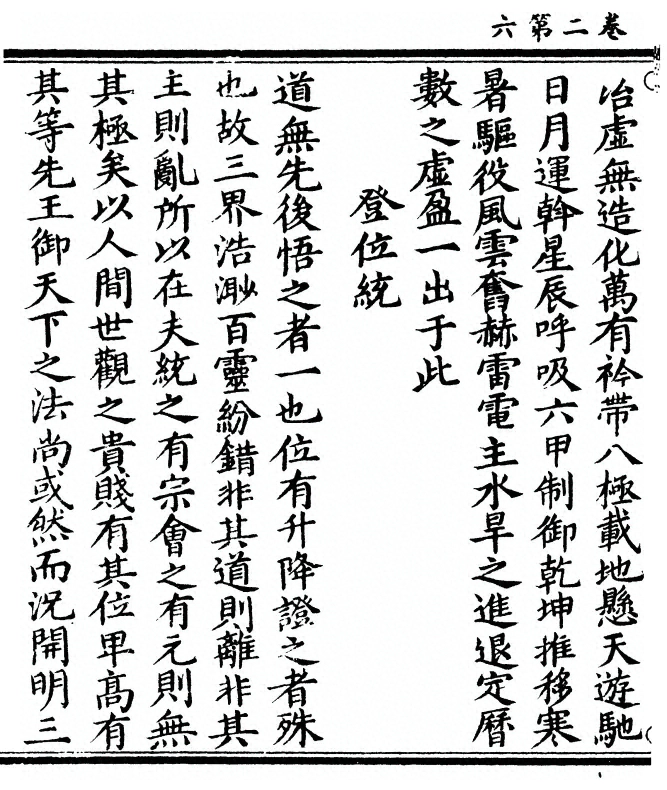 卷二第六
冶虛無造化萬有衿帶八極載地懸天遊馳
日月運斡星辰呼吸六甲制御乾坤推移寒
暑驅役風雲奮赫雷電主水旱之進退定曆
數之虛盈一出于此
登位統
道無先後悟之者一也位有升降證之者殊
也故三界浩渺百靈紛錯非其道則離非其
主則亂所以在夫統之有宗會之有元則無
其極矣以人間世觀之貴賤有其位卑高有
其等先王御天下之法尚或然而況開明三